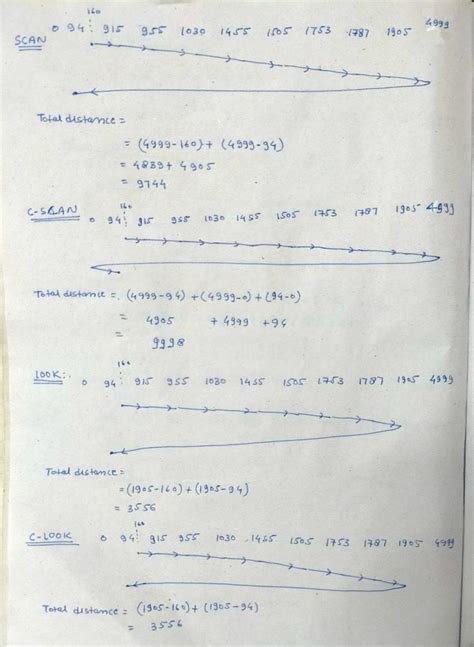 160
SCAN 0 94 915 955 1030 1455 1505 1753 1787 1905 4999
Total distance =
= (4999-160) + (4999-94)
= 4839 + 4905
= 9744
160
C-SCAN 0 94 915 955 1030 1455 1505 1753 1787 1905 4999
Total distance = (4999-94) + (4999-0) + (94-0)
= 4905 + 4999 + 94
= 9998
160
LOOK:- 0 94 915 955 1030 1455 1505 1753 1787 1905 4999
Total distance =
= (1905-160) + (1905-94)
= 3556
160
C-LOOK 0 94 915 955 1030 1455 1505 1753 1787 1905 4999
Total distance = (1905-160) + (1905-94)
= 3556